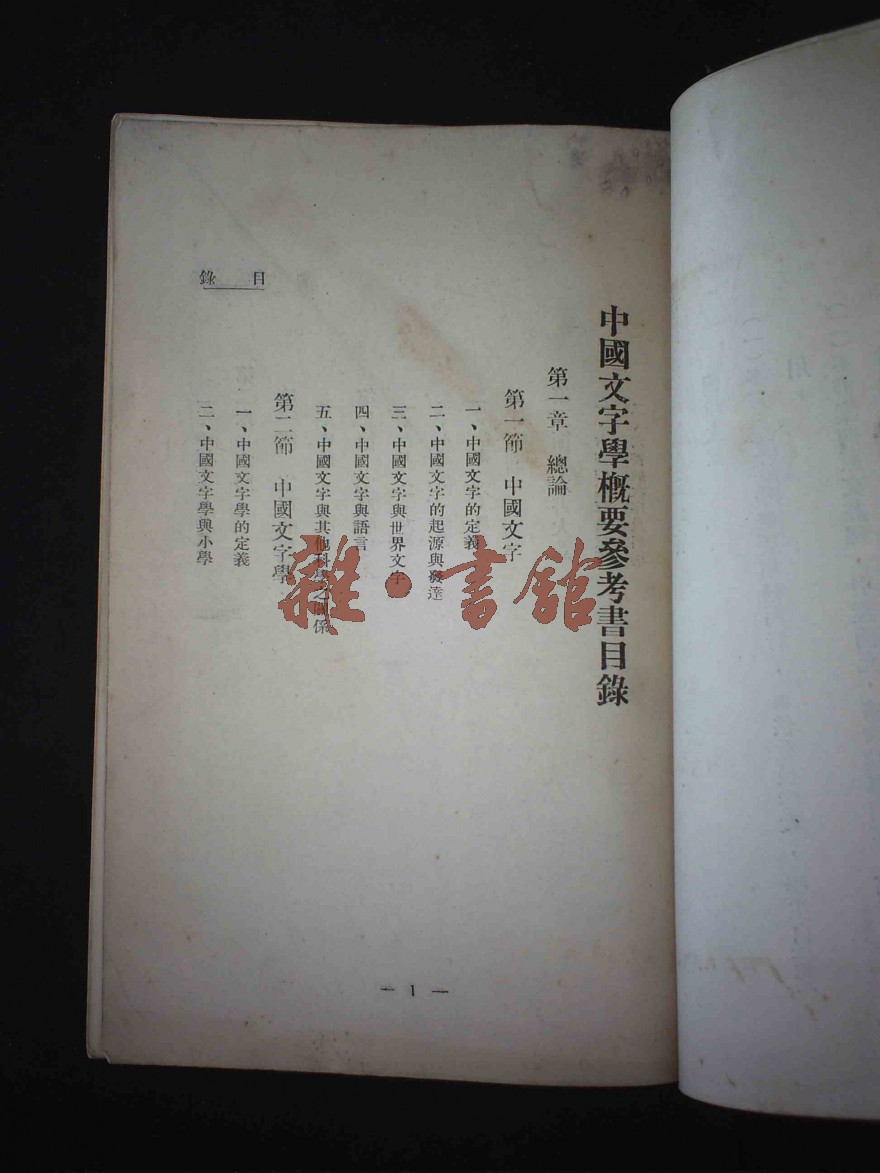 中國文字學概要參考書目錄
第一章　總論
第一節　中國文字
一、中國文字的定義
二、中國文字的起源與發達
三、中國文字與世界文字
四、中國文字與語言
五、中國文字與其他科學之關係
第二節　中國文字學
一、中國文字學的定義
二、中國文字學與小學
目錄
— 1 —
雜·書館